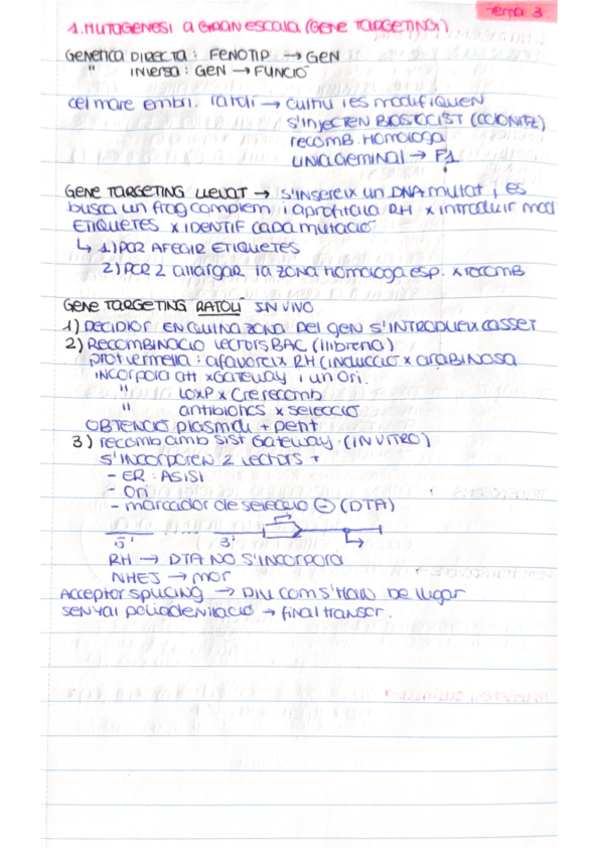 Tema 3
1. MUTOGENESI a GRAN ESCALA (GENE TARGETING)
GENETICA DIRECTA: FENOTIP → GEN
" INVERSA: GEN → FUNCIÓ
cel mare embri. ratolí → cultiu i es modifiquen
s'injecten blastocist (colonitz)
recomb. Homologa
linia Germinal → F1
GENE TARGETING LLEVAT → s'insereix un DNA mutat i es
busca un frag complem i aprofita la RH x introduir mod
ETIQUETES x IDENTIF cada mutació
↳ 1) PCR AFEGIR ETIQUETES
2) PCR 2 allargar la zona homologa esp. x recomb
GENE TARGETING RATOLÍ IN VIVO
1) DECIDIR EN QUINA ZONA DEL GEN S'INTRODUEIX CASSET
2) Recombinació vectors BAC (llibreria)
prot vermella: afavoreix RH (inducció x arabinosa
INCORPORA att xGateway i un ori.
" loxP x Cre recomb
" antibiotics x selecció
OBTENCIÓ plasmidi + pent
3) recomb amb sist Gateway. (IN VITRO)
S'INCORPOREN 2 vectors +
- ER: ASISI
- Ori
- marcador de selecció ⊖ (DTA)
5' 3'
RH → DTA NO S'INCORPORA
NHEJ → mor
Acceptor splicing → DIU COM S'HAN DE lligar
senyal poliadenilació → final transcr.